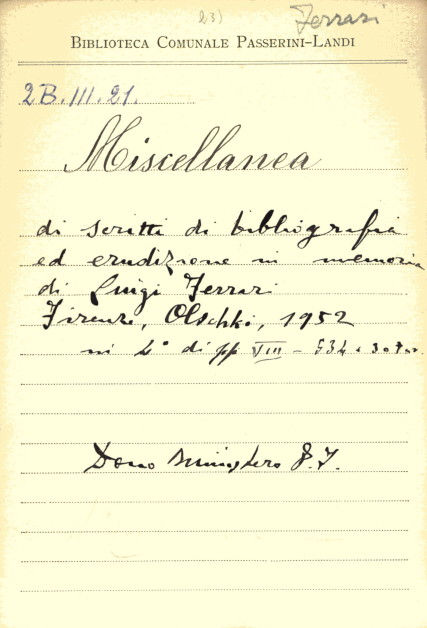 23)
Ferrari
BIBLIOTECA COMUNALE PASSERINI-LANDI
2B.III.21.
Miscellanea
di scritti di bibliografia
ed erudizione in memoria
di Luigi Ferrari
Firenze, Olschki, 1952
in 4° di pp VIII - 534
Dono Ministero P.I.